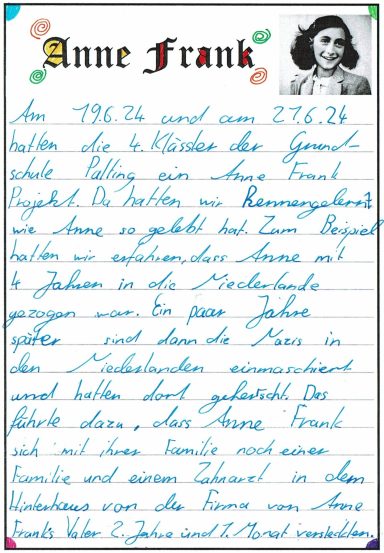 Anne Frank
Am 19.6.24 und am 21.6.24
hatten die 4. Klässler der Grund-
schule Palling ein Anne Frank
Projekt. Da hatten wir kennengelernt,
wie Anne so gelebt hat. Zum Beispiel
hatten wir erfahren, dass Anne mit
4 Jahren in die Niederlande
gezogen war. Ein paar Jahre
später sind dann die Nazis in
den Niederlanden einmaschiert
und hatten dort geherscht. Das
führte dazu, dass Anne Frank
sich mit ihrer Familie noch einer
Familie und einem Zahnarzt in dem
Hinterhaus von der Firma von Anne
Franks Vater 2. Jahre und 1. Monat versteckten.